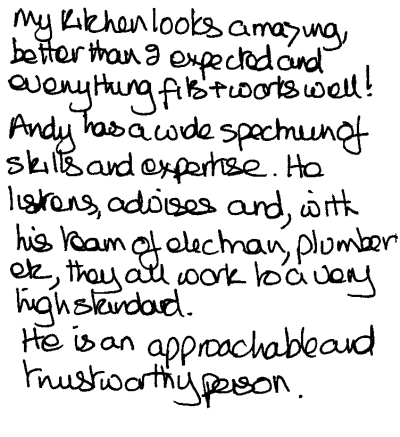 My kitchen looks amazing,
better than I expected and
everything fits + works well!
Andy has a wide spectrum of
skills and expertise. He
listens, advises and, with
his team of electrician, plumber
etc, they all work to a very
high standard.
He is an approachable and
trustworthy person.